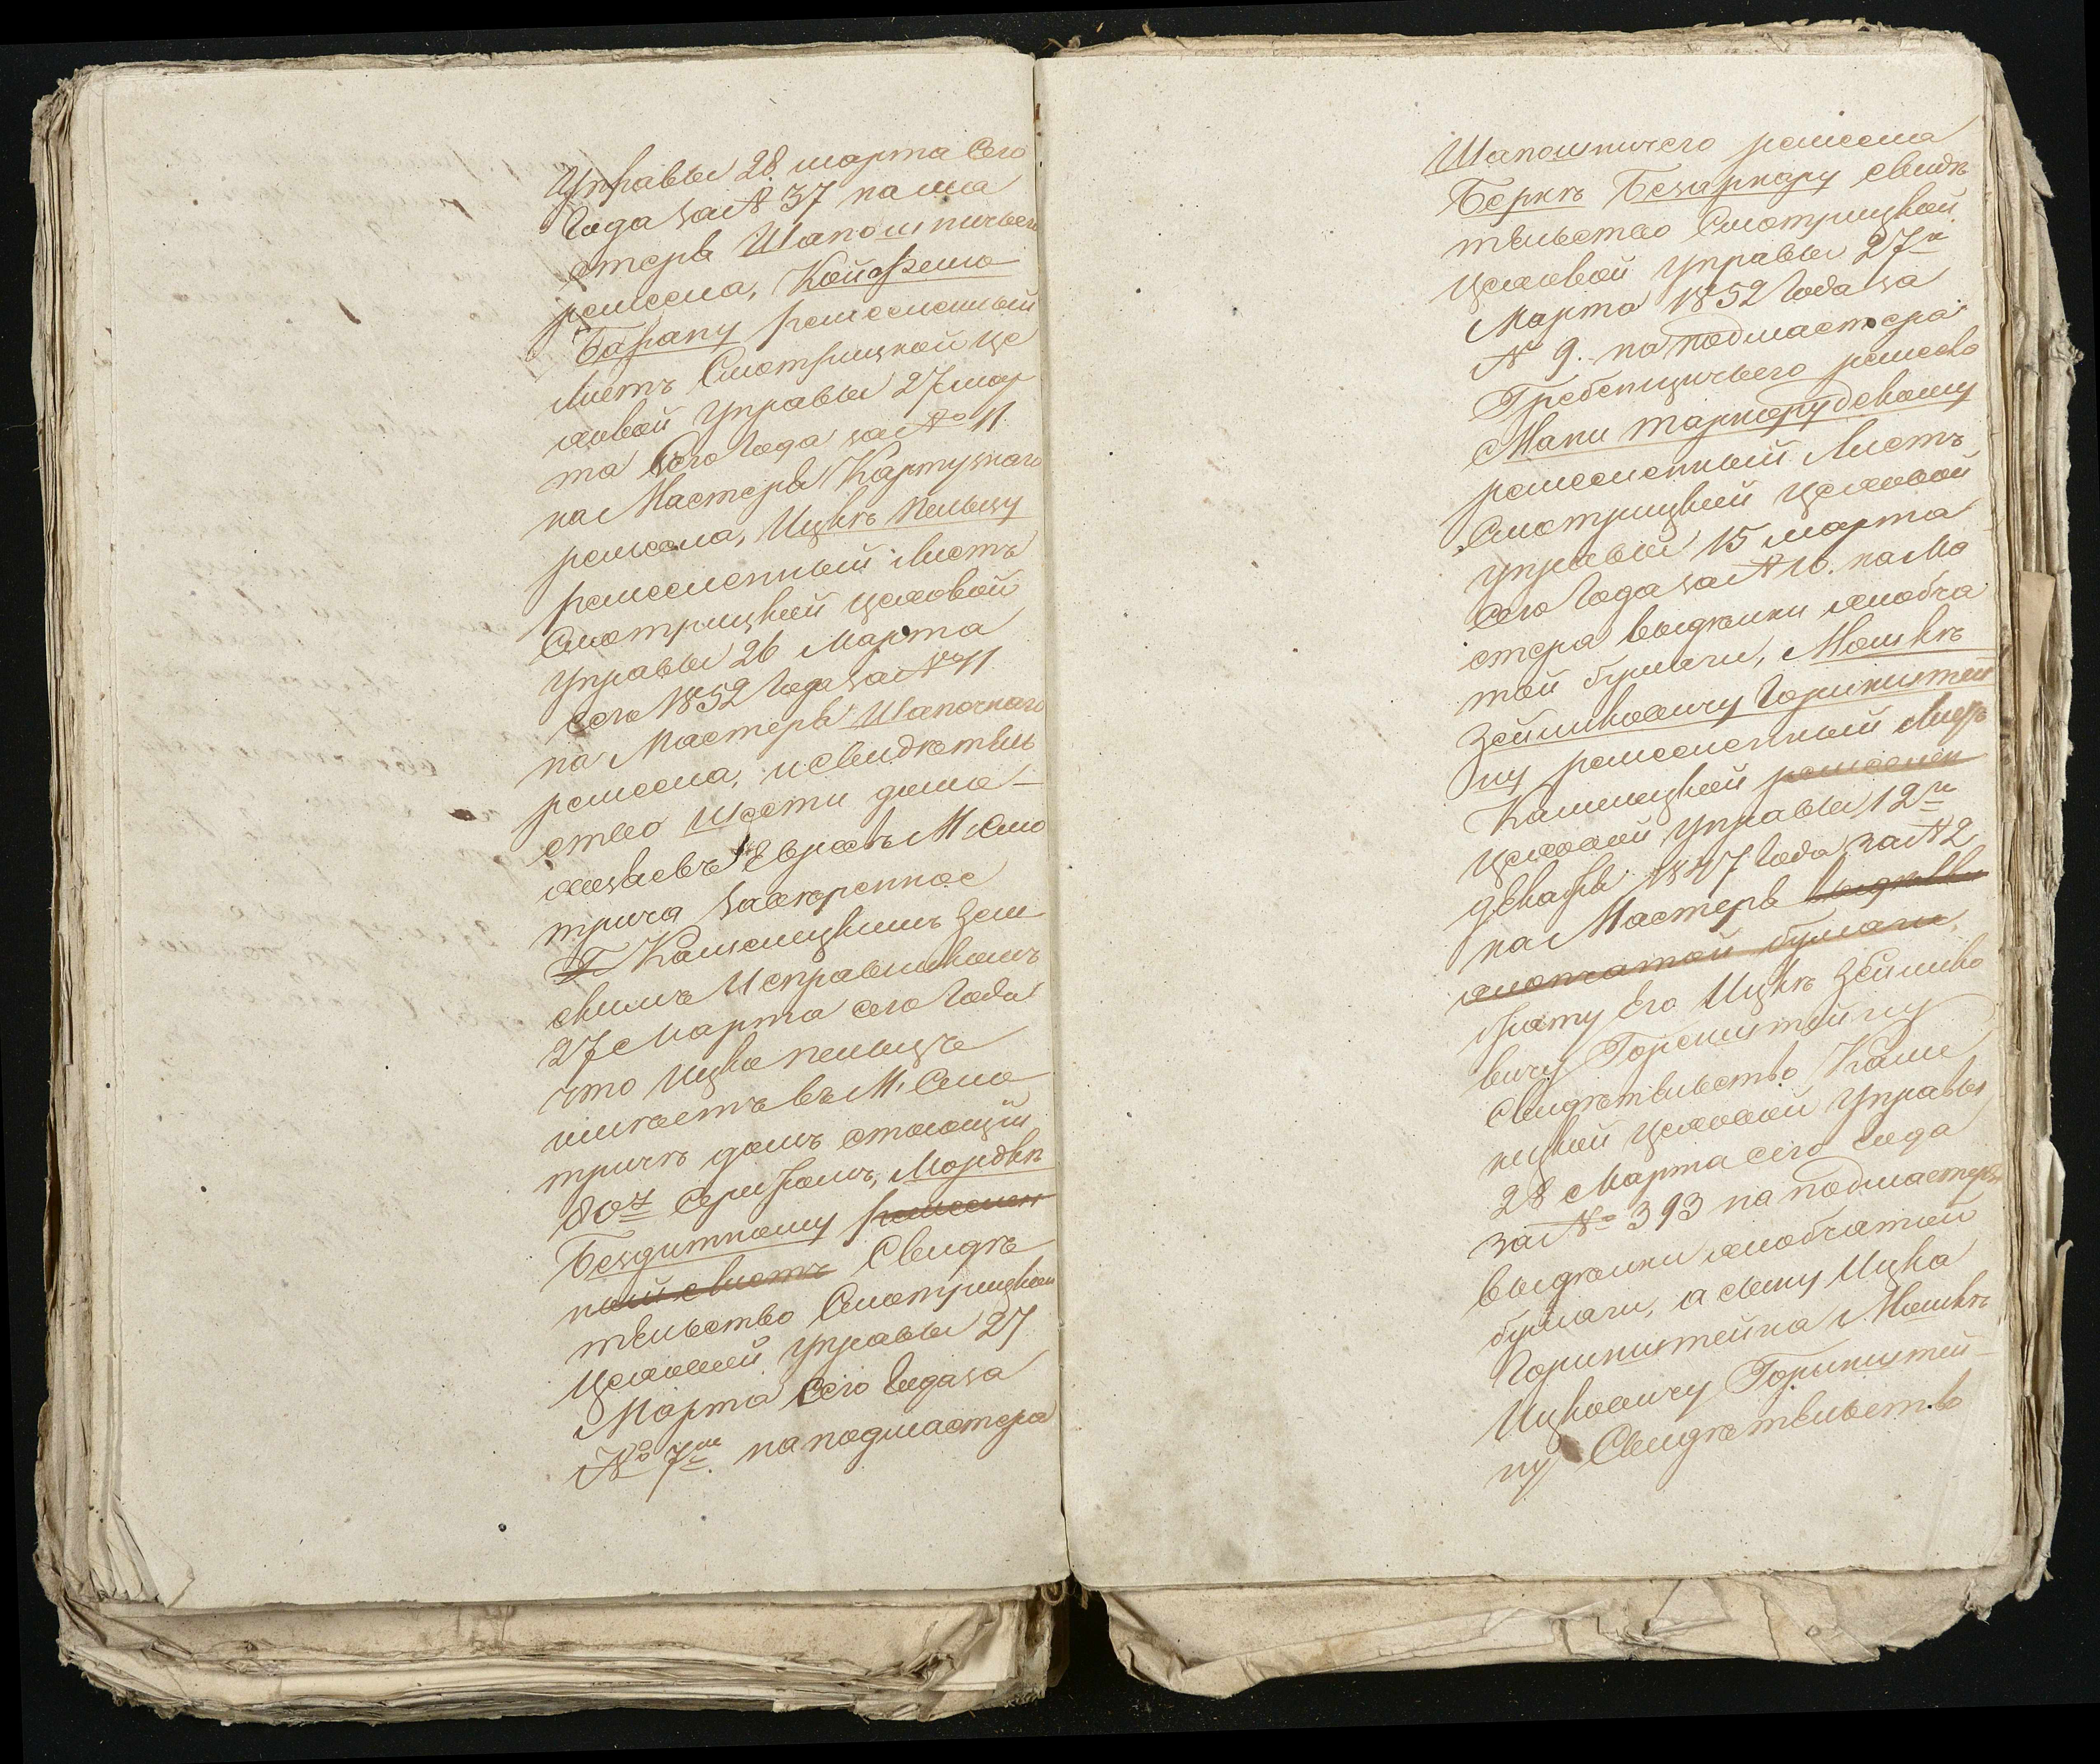 Управы 28 марта Сего
Года за № 37 на ма
стера Шапошничьего
ремесла, Койфеше
Барану ремесленный
листъ Смотрицкой це
ховой Управы 27 мар
та Сего Года за № 11
на Мастера Картузнаго
ремесла, Ицкѣ Пельцу
ремесленный Листъ
Смотрицкой цеховой
Управы 26 Марта
сего 1852 Года за № 11
на Мастера Шапочнаго
ремесла, и свидѣтель
ство шести домо-
хозяевъ Евреевъ М. Смо
трича завѣренное
Г Каменецкимъ Зем
скимъ Исправникомъ
27 Марта сего Года
что Ицко Пельцъ
имѣетъ въ М. Смо
тричѣ домъ стоющій
80ть серебромъ, Мордкѣ
Бездитному ремеслен
ный листъ Свидѣ
тельство Смотрицкой
цеховой Управы 27
Марта Сего Года за
№ 7м. на подмастера
Шапошничего ремесла
Беркѣ Бецаркару свидѣ
тельство Смотрицкой
цеховой Управы 27м
Марта 1852 Года за
№ 9. на подмастера
Гребенщичьего ремесла
Мани Таркорудскому
ремесленный Листъ
Смотрицкой цеховой
Управы 15 марта
сего Года за № 10. на Ма
стера выдѣлки хлобча
той бумаги, Мошкѣ
Зейликовичу Горинштей
ну ремесленный Листъ
Каменецкой ремеслен
цеховой Управы 12м
декабря 1847 Года за № 2
на Мастера выдѣлки
хлопчатой бумаги,
брату Его Ицкѣ Зейлико
вичу Горенштейну
Свидѣтельство Каме
нецкой цеховой Управы
28 Марта сего года
за № 393 на подмастера
выдѣлки хлобчатой
бумаги, а сыну Ицка
Горинштейна Мошкѣ
Ицковичу Горинштей-
ну Свидѣтельство